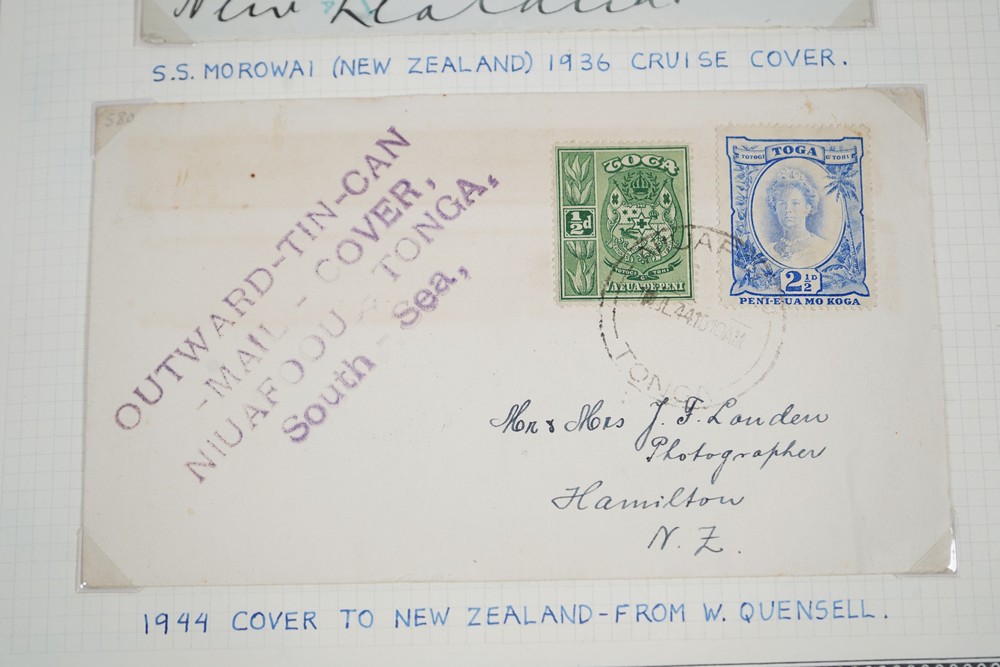 New Zealand.
S.S. MOROWAI (NEW ZEALAND) 1936 CRUISE COVER.
580
OUTWARD-TIN-CAN
-MAIL - COVER,
NIUAFOOU TONGA,
South - Sea,
TOGA
½d
TOTOGI TOFI
VAEUA·OE·PENI
TOGA
TOTOGI TOHI
2½D
PENI·E·UA MO KOGA
TONGA
Mr & Mrs J. F. Louden
Photographer
Hamilton
N. Z.
1944 COVER TO NEW ZEALAND-FROM W. QUENSELL.